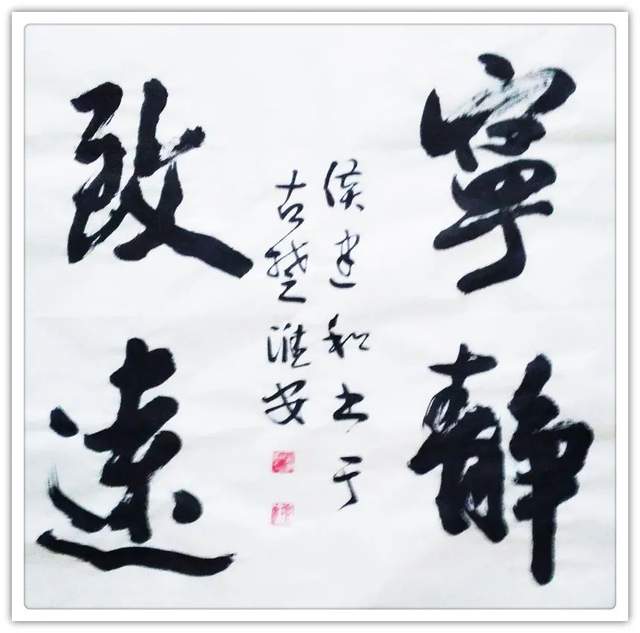 寧靜
致遠
侯建和书于
古楚淮安